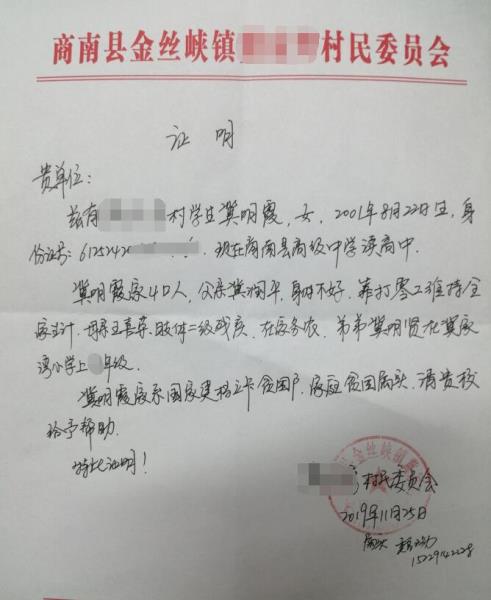 商南县金丝峡镇 村民委员会
证 明
贵单位：
兹有 村学生冀明霞，女，2001年8月22日生，身
份证号：6125242 . 现在商南县高级中学读高中.
冀明霞家4口人，父亲冀 平，身体不好，靠打零工维持全
家生计.母亲王喜 、肢体二级残疾，在家务农，弟弟冀明贤在冀家
湾小学上 年级.
冀明霞家系国家建档立卡贫困户.家庭贫困属实.请贵校
给予帮助.
特此证明！
金丝峡镇
村民委员会
2019年11月25日
属实